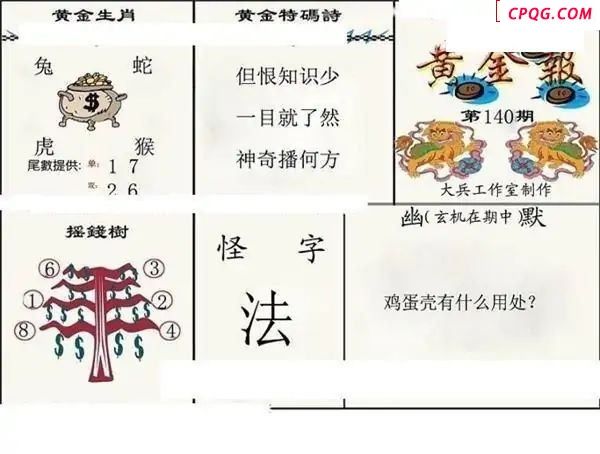 CPQG.COM
黄金生肖
兔 蛇
虎 猴
尾數提供: 单: 1 7
双: 2 6
黄金特碼詩
但恨知识少
一目就了然
神奇播何方
黄金報
第140期
大兵工作室制作
摇錢樹
⑥ ③
① ②
⑧ ④
怪 字
法
幽(玄机在期中)默
鸡蛋壳有什么用处?